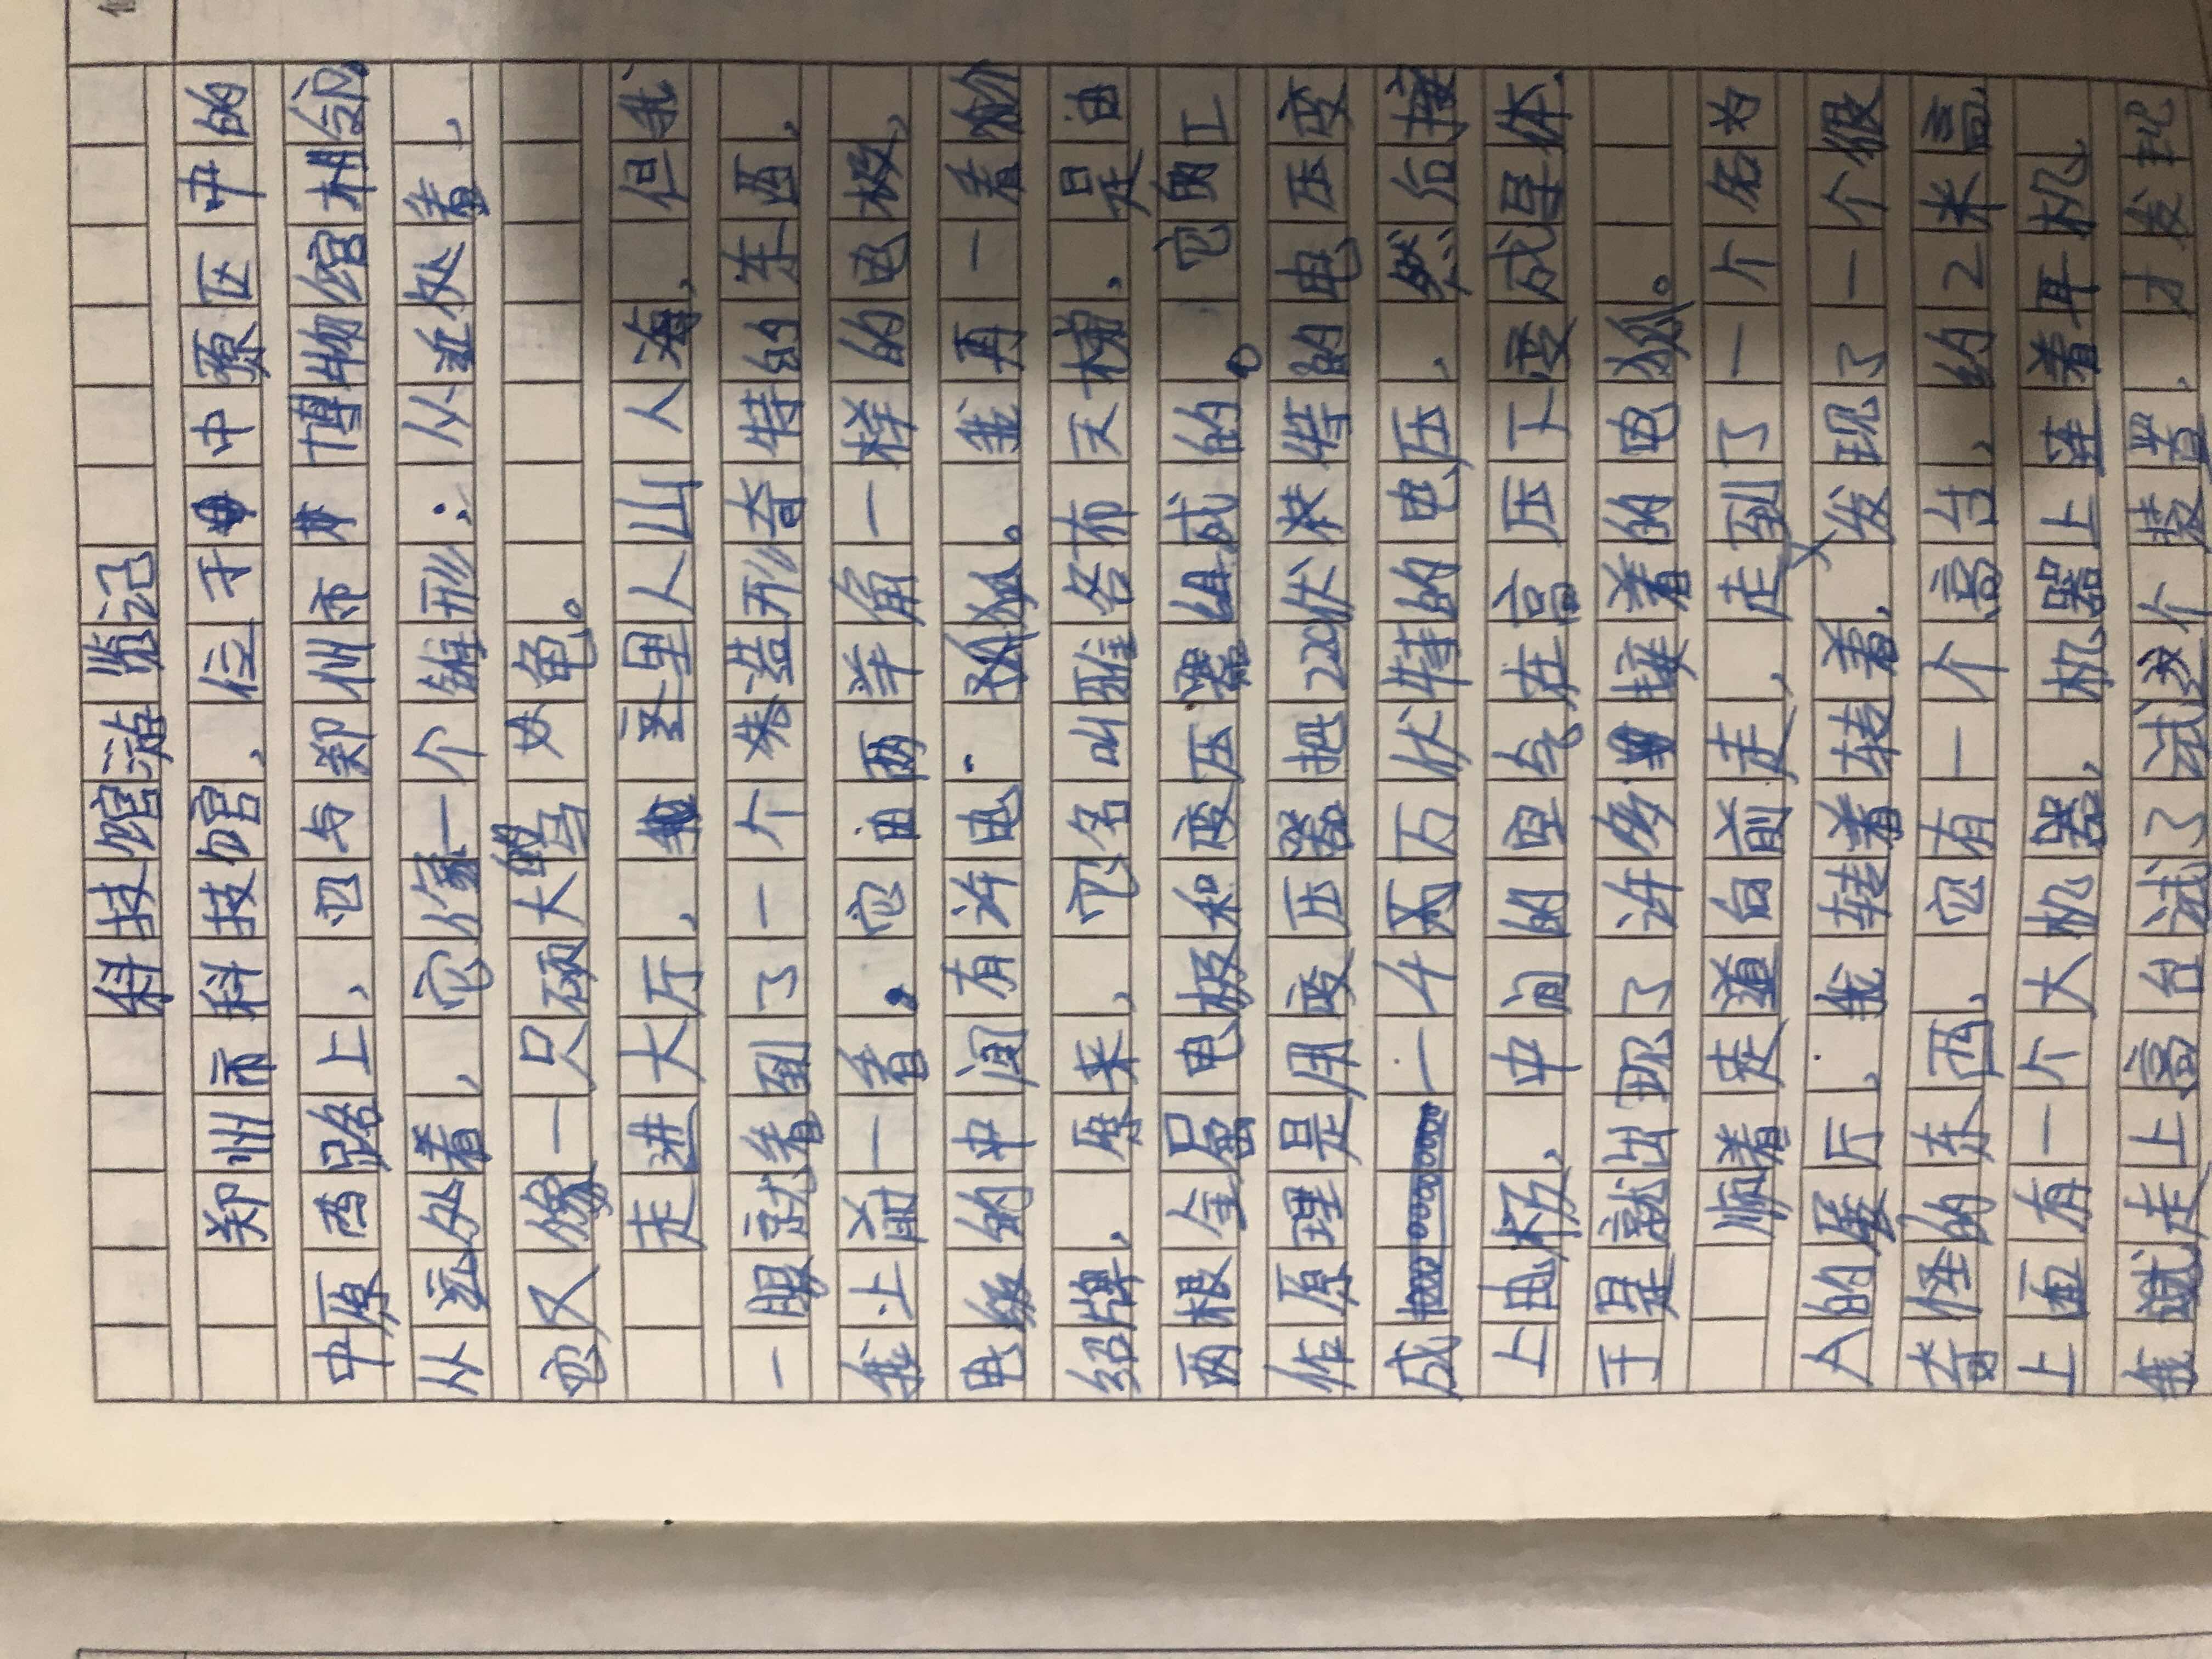 科技馆游览记
郑州市科技馆,位于中原区中的
中原西路上,它与郑州市博物馆相邻,
从远处看,它像一个锥形;从近处看,
它又像一只硕大的乌龟。
走进大厅,这里人山人海,但我
一眼就看到了一个造形奇特的东西,
我上前一看,它由两羊角一样的电极,
电极的中间有许电弧。我再一看
绍牌,原来,它名叫雅各布天梯,是由
两根金属电极和变压器组成的。它的工
作原理是用变压器把220伏特的电压变
成一千万伏特的电压,然后接
上电极,中间的空气在高压下变成导体.
于是就出现了许多接着的电弧。
顺着走道向前走,走到了一个名为
人的展厅,我转着转着,发现了一个很
奇怪的东西,它有一个高台,约2米高,
上面有一个大机器,机器上连着耳机,
我试走上高台试了试这个装置,才发现